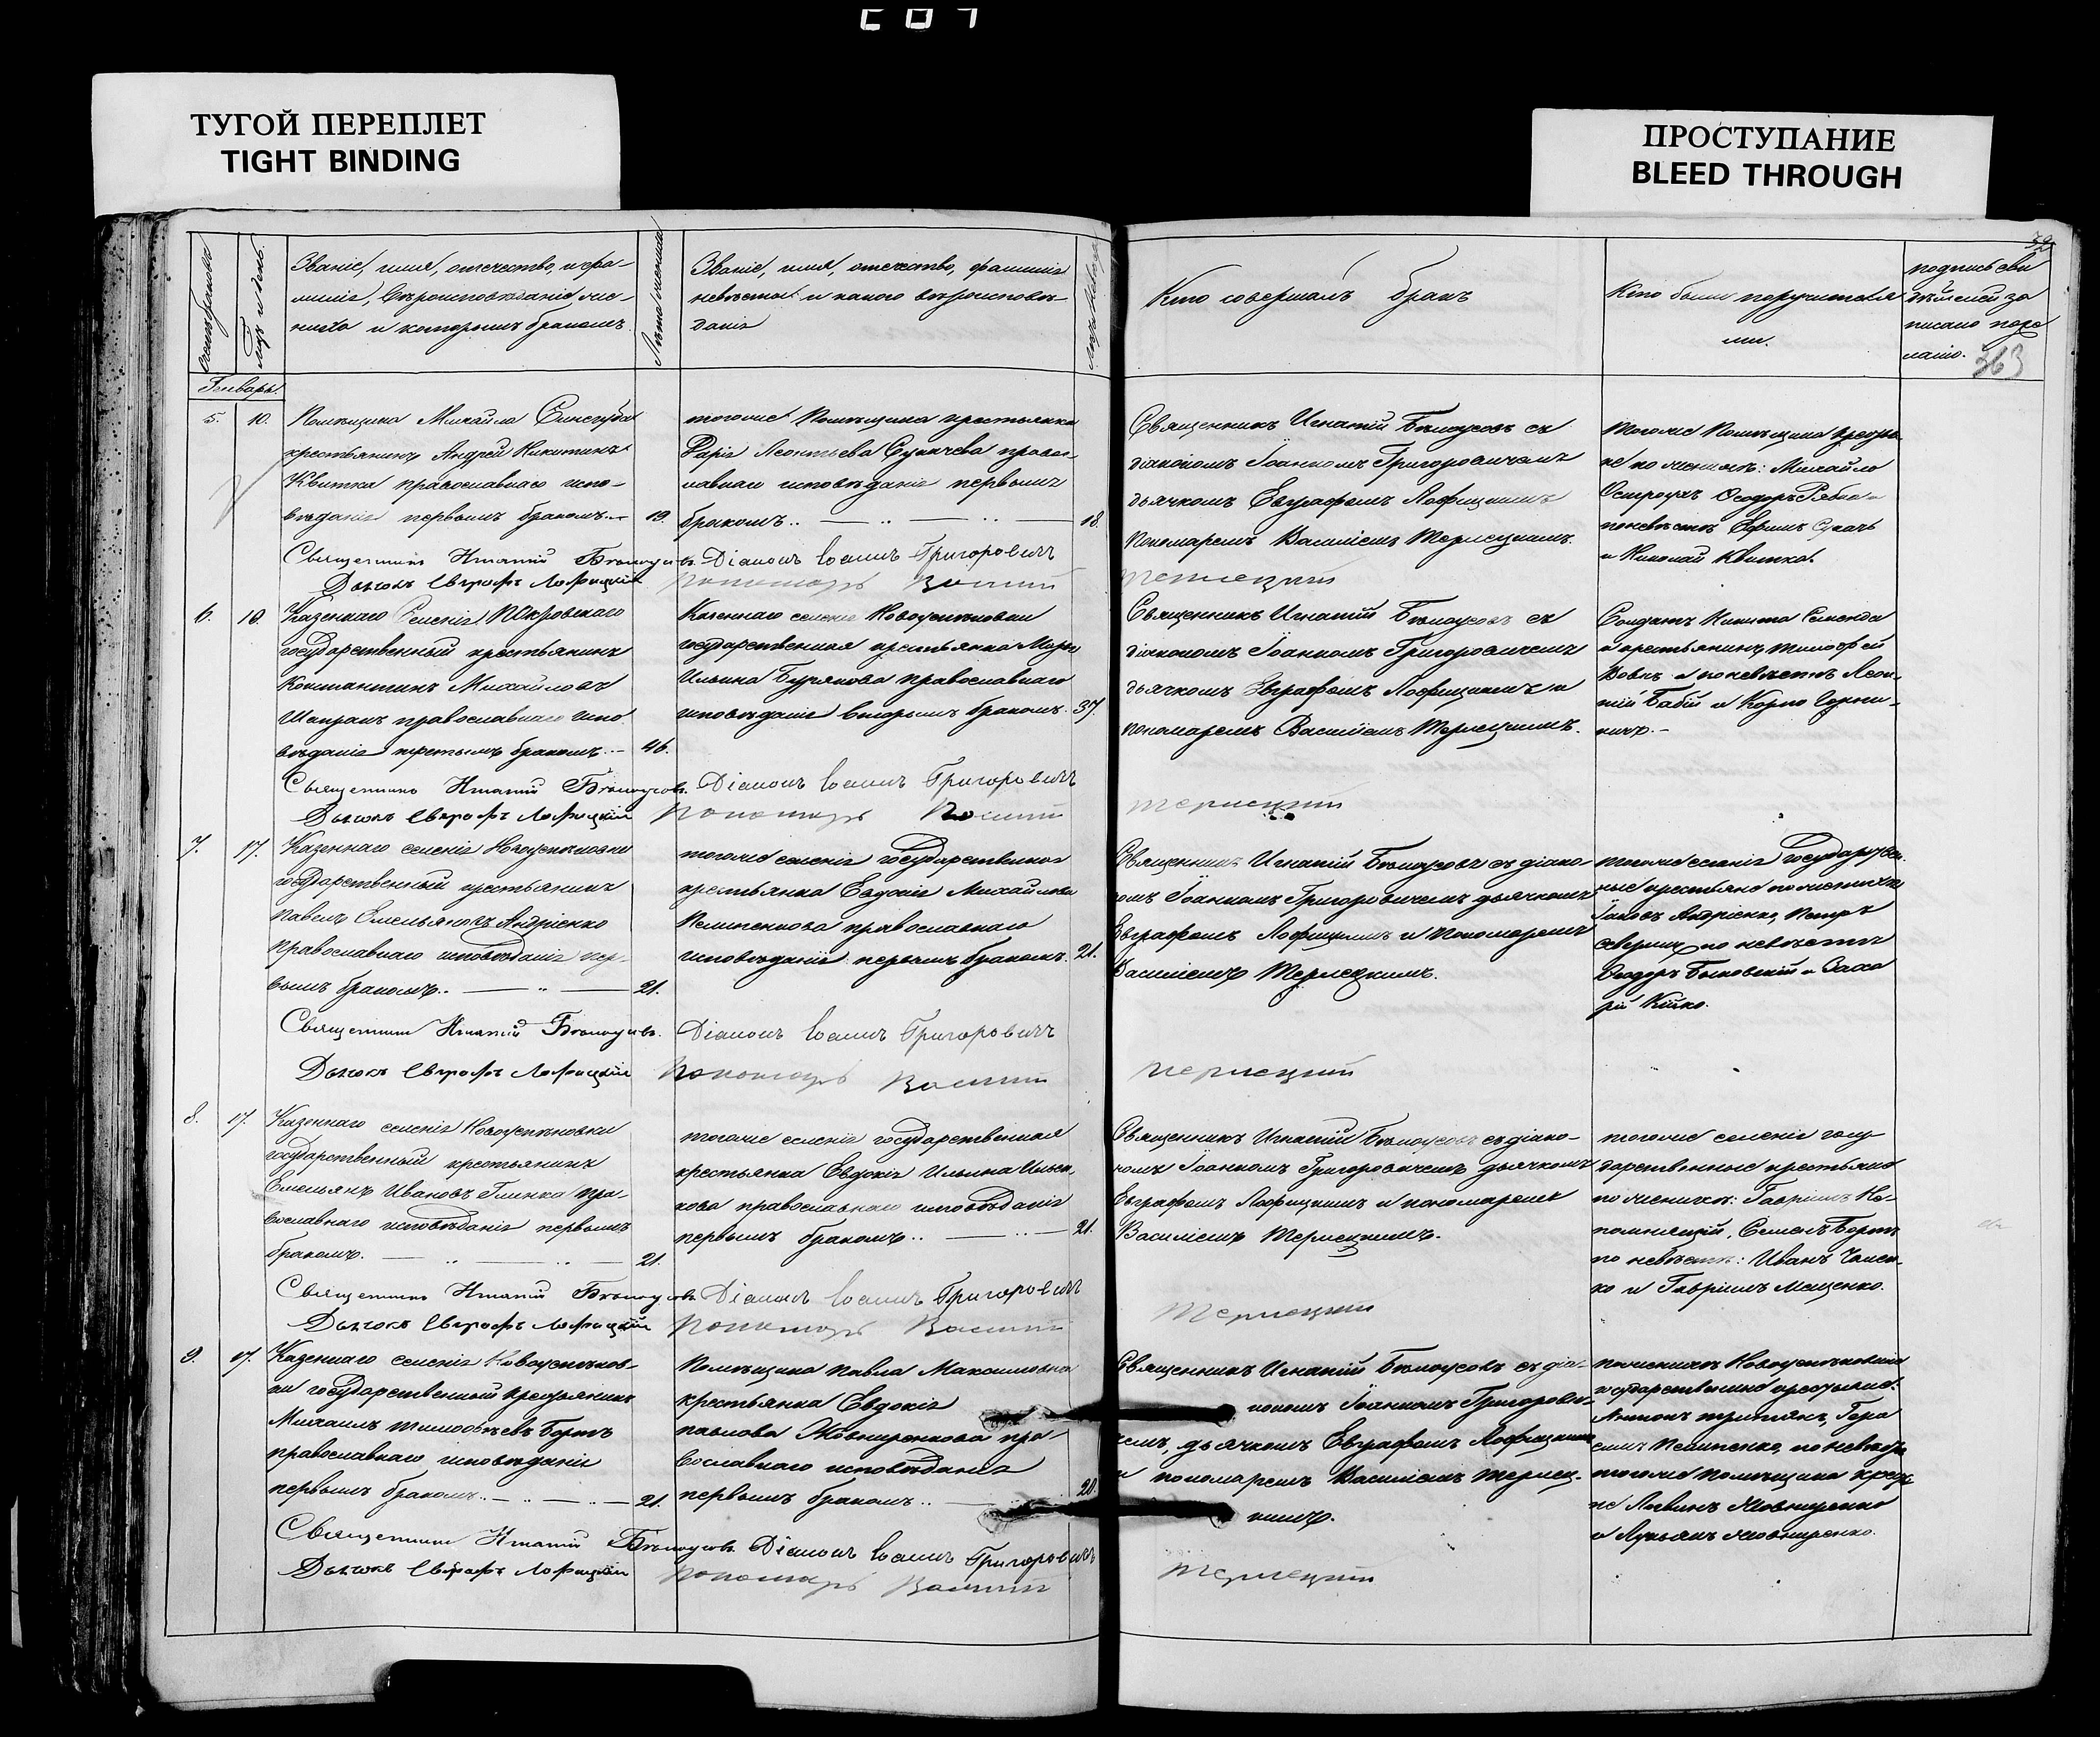 ТУГОЙ ПЕРЕПЛЕТ
TIGHT BINDING
ПРОСТУПАНИЕ
BLEED THROUGH
Званіе, имя, отечество, и фа-
миліе, вѣроисповѣданіе же-
ниха и которымъ бракомъ
Лѣта жениха
Званіе, имя, отечество, фамилія
невѣсты и какого вѣроисповѣ-
данія
Кто совершалъ бракъ
Кто были поручителя
ми.
подпись сви
дѣтелей за
писано по же
ланію.
363
Генварь.
5.
10.
Помѣщика Михайла
крестьянинъ Андрей Никитинъ
Квитка православнаго испо-
вѣданія первымъ бракомъ
19.
тогоже Помѣщика крестьянка
Дарія Леонтьева Сукачева право-
славнаго исповѣданія первымъ
бракомъ
18.
Священникъ Игнатій Бѣлоусовъ съ
діакономъ Іоанномъ Григоровичемъ
дьячкомъ Евграфомъ Лофицкимъ
Пономаремъ Василіемъ Терлецкимъ.
тогоже Помѣщика кресть
не по женихѣ: Михайло
Остроухъ Ѳеодоръ
по невѣстѣ Ефимъ Сукачъ
и Николай Квитка.
Священникъ Игнатій Бѣлоусовъ. Діаконъ Іоаннъ Григоровичъ
Дьячокъ Евграфъ Лофицкій Пономарь Василій Терлецкій
6.
10.
Казеннаго Селенія Покровскаго
государственный крестьянинъ
Константинъ Михайловъ
Шапранъ православнаго испо
вѣданія третьимъ бракомъ
46.
Казеннаго селенія Новоуспеновки
государственная крестьянка Марѳа
Ильина Бурякова православнаго
исповѣданія вторымъ бракомъ.
37.
Священникъ Игнатій Бѣлоусовъ съ
діакономъ Іоанномъ Григоровичемъ
дьячкомъ Евграфомъ Лофицкимъ и
пономаремъ Василіемъ Терлецкимъ.
Солдатъ Никита Семенда
и крестьянинъ Тимофей
Вовкъ и по невѣстѣ Леон-
тій Бабій и Карпо
Священникъ Игнатій Бѣлоусовъ. Діаконъ Іоаннъ Григоровичъ
Дьячокъ Евграфъ Лофицкій Пономарь Василій Терлецкій
7.
17.
Казеннаго селенія Новоуспеновки
государственный крестьянинъ
Павелъ Емельяновъ Андріенко
Православнаго исповѣданія пер-
вымъ бракомъ
21.
тогоже селенія государственная
крестьянка Евдокія Михайлова
Пелипенкова православнаго
исповѣданія первымъ бракомъ.
21.
Священникъ Игнатій Бѣлоусовъ съ діако-
номъ Іоанномъ Григоровичемъ дьячкомъ
Евграфомъ Лофицкимъ и Пономаремъ
Василіемъ Терлецкимъ.
тогоже селенія Государствен
ные крестьяне по женихѣ
Іаковъ Андріенко, Петръ
по невѣстѣ
Ѳеодоръ Быковскій и Заха
рій Кійко.
Священникъ Игнатій Бѣлоусовъ. Діаконъ Іоаннъ Григоровичъ
Дьячокъ Евграфъ Лофицкій Пономарь Василій Терлецкій
8.
17.
Казеннаго селенія Новоуспеновки
государственный крестьянинъ
Емельянъ Ивановъ Глинка пра-
вославнаго исповѣданія первымъ
бракомъ.
21.
тогоже селенія государственная
крестьянка Евдокія Ильина
православнаго исповѣданія
первымъ бракомъ
21.
Священникъ Игнатій Бѣлоусовъ съ діако-
номъ Іоанномъ Григоровичемъ дьячкомъ
Евграфомъ Лофицкимъ и пономаремъ
Василіемъ Терлецкимъ.
тогоже селенія госу-
дарственные крестьяне
по женихѣ: Гавріилъ Не-
помнящій, Семенъ Бортъ
по невѣстѣ: Иванъ
и Гавріилъ Мащенко.
Священникъ Игнатій Бѣлоусовъ. Діаконъ Іоаннъ Григоровичъ
Дьячокъ Евграфъ Лофицкій Пономарь Василій Терлецкій
9.
17.
Казеннаго селенія Новоуспенов-
ки государственный крестьянинъ
Михаилъ Тимофѣевъ Бортъ
православнаго исповѣданія
первымъ бракомъ
21.
Помѣщика Павла Максимовича
крестьянка Евдокія
Павлова Жовниренкова пра-
вославнаго исповѣданія
первымъ бракомъ
20.
Священникъ Игнатій Бѣлоусовъ съ діа-
кономъ Іоанномъ Григорови-
чемъ, дьячкомъ Евграфомъ Лофицкимъ
и пономаремъ Василіемъ Терлец-
кимъ.
По женихѣ Новоуспеновки
государственные крестьяне:
Антонъ Гера
симъ Пелипенко, по невѣстѣ
тогоже Помѣщика крестья
не Логвинъ Жовниренко
и Лукьянъ Жовниренко.
Священникъ Игнатій Бѣлоусовъ. Діаконъ Іоаннъ Григоровичъ
Дьячокъ Евграфъ Лофицкій Пономарь Василій Терлецкій